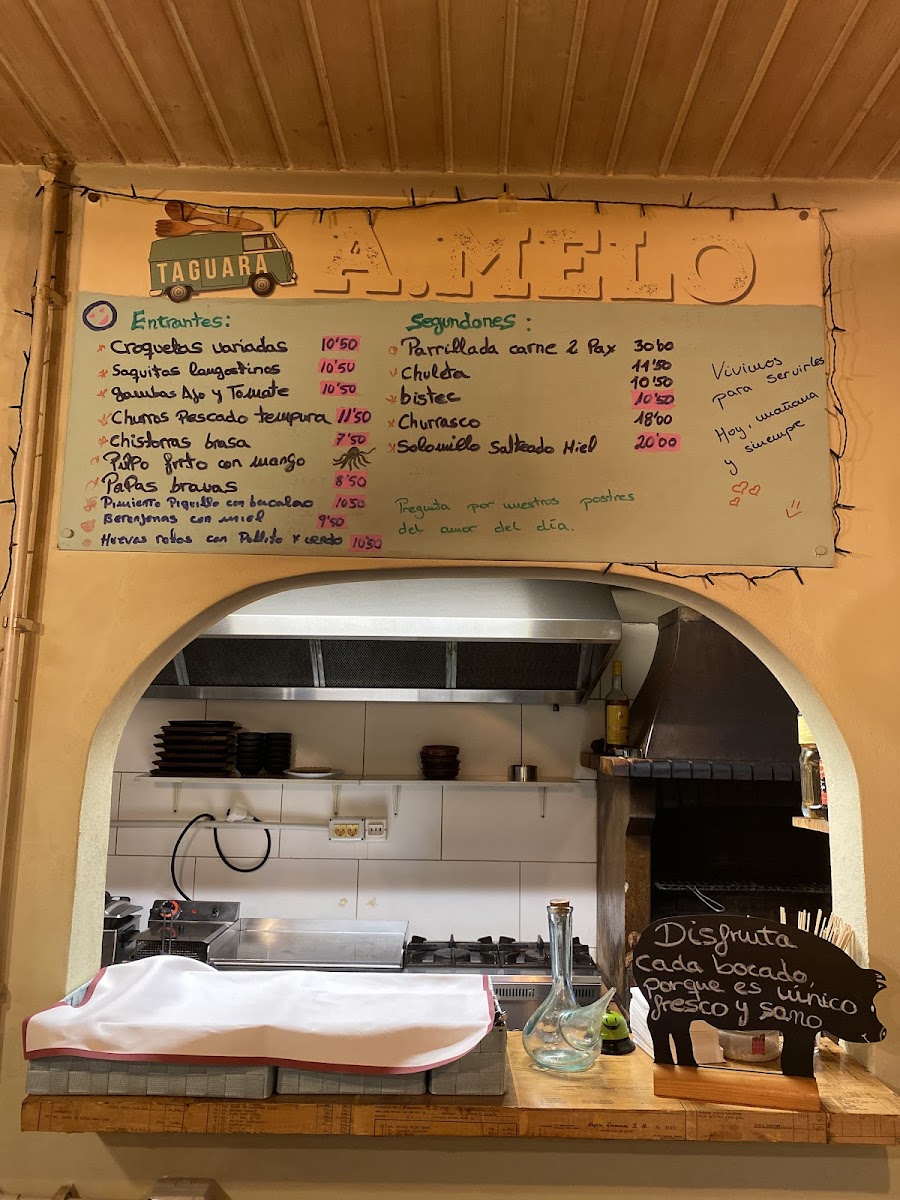 TAGUARA
A.MELO
Entrantes:
Croquetas variadas 10'50
Saquitos langostinos 10'50
Gambas Ajo y Tomate 10'50
Churros Pescado tempura 11'50
Chistorras brasa 7'50
Pulpo frito con mango
Papas bravas 8'50
Pimiento Piquillo con bacalao 10'50
Berenjenas con miel 9'50
Huevos rotos con Pollito y cerdo 10'50
Segundones:
Parrillada carne 2 Pax 30'00
Chuleta 11'50
10'50
bistec 10'50
Churrasco 18'00
Solomillo Salteado Miel 20'00
Pregunta por nuestros postres
del amor del día.
Vivimos
para servirles
Hoy, mañana
y siempre
Disfruta
cada bocado,
porque es único
fresco y sano